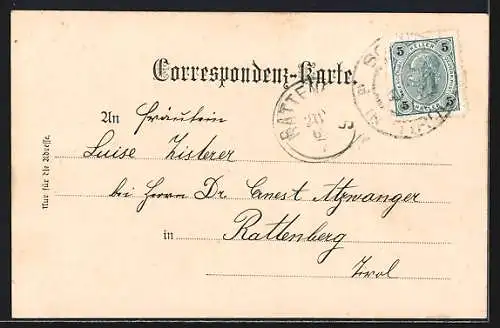 Correspondenz-Karte.
An Fräulein
Luise Zisterer
bei Herrn Dr. Ernest Atzwanger
in Rattenberg
Tirol
Nur für die Adresse.
RATTEN
5 HELLER 5
5 5